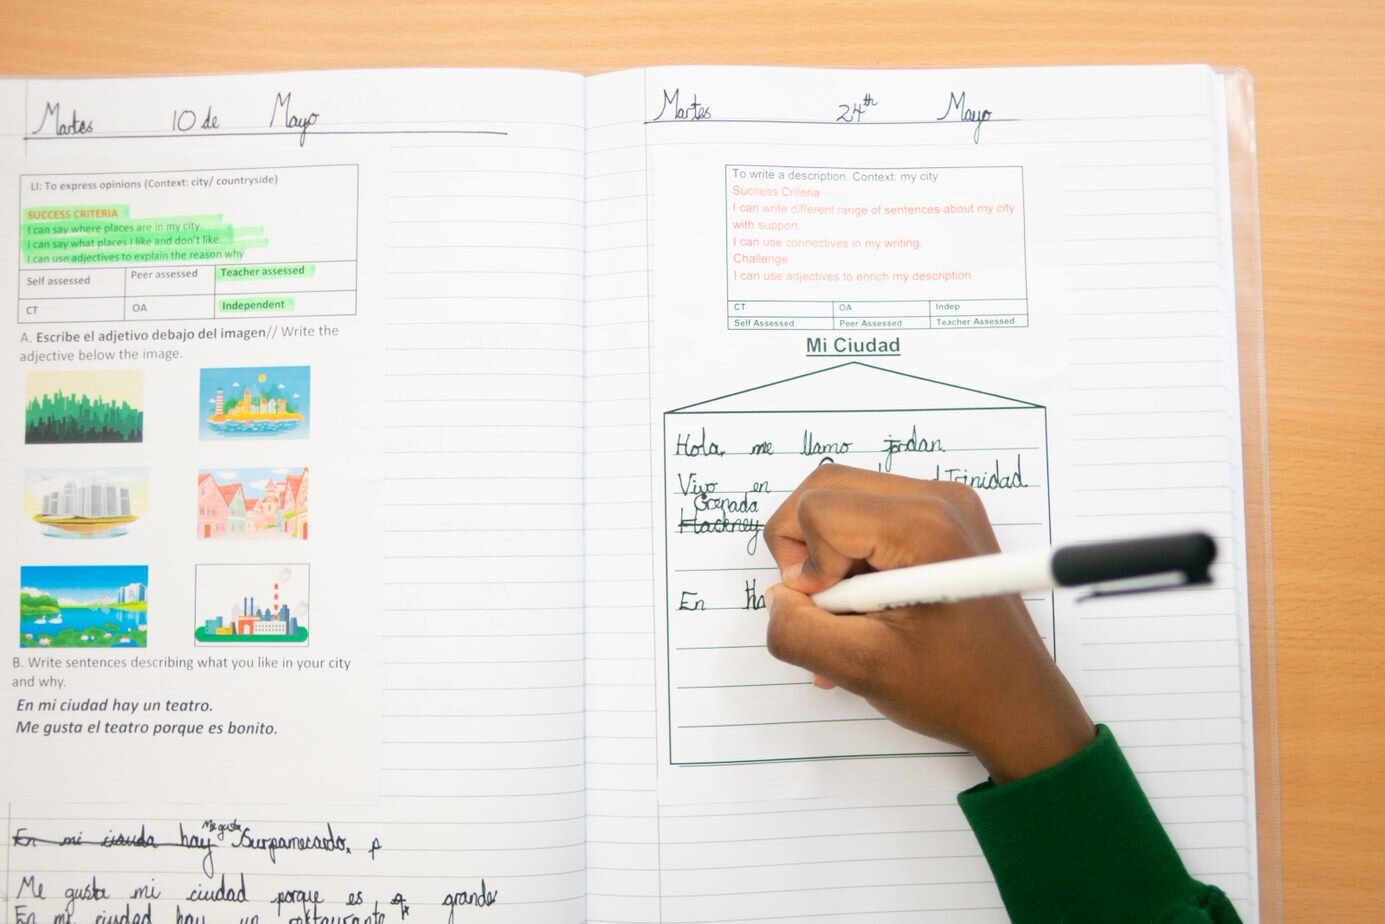 Martes 10 de Mayo
LI: To express opinions (Context: city/ countryside)
SUCCESS CRITERIA
I can say where places are in my city.
I can say what places I like and don't like.
I can use adjectives to explain the reason why
Self assessed Peer assessed Teacher assessed
CT OA Independent
A. Escribe el adjetivo debajo del imagen// Write the
adjective below the image.
B. Write sentences describing what you like in your city
and why.
En mi ciudad hay un teatro.
Me gusta el teatro porque es bonito.
Me gusta
En mi ciauda hay
Me gusta mi ciudad porque es grande
En mi ciudad hay un
Martes 24th Mayo
To write a description. Context: my city
Success Criteria
I can write different range of sentences about my city
with support.
I can use connectives in my writing.
Challenge
I can use adjectives to enrich my description.
CT OA Indep
Self Assessed Peer Assessed Teacher Assessed
Mi Ciudad
Hola, me llamo jordan.
Vivo en Trinidad
Grenada
Hackney
En Ha